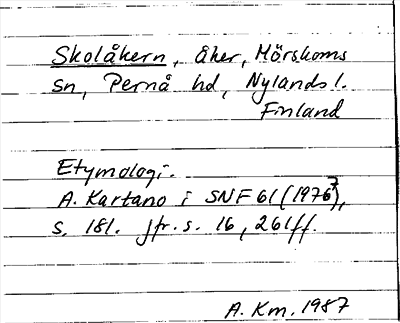 Skolåkern, åker, Mörskoms
sn, Pernå hd, Nylands l.
Finland
Etymologi.
A. Kartano i SNF 61 (1976),
s. 181. Jfr. s. 16, 261ff.
A. Km. 1987